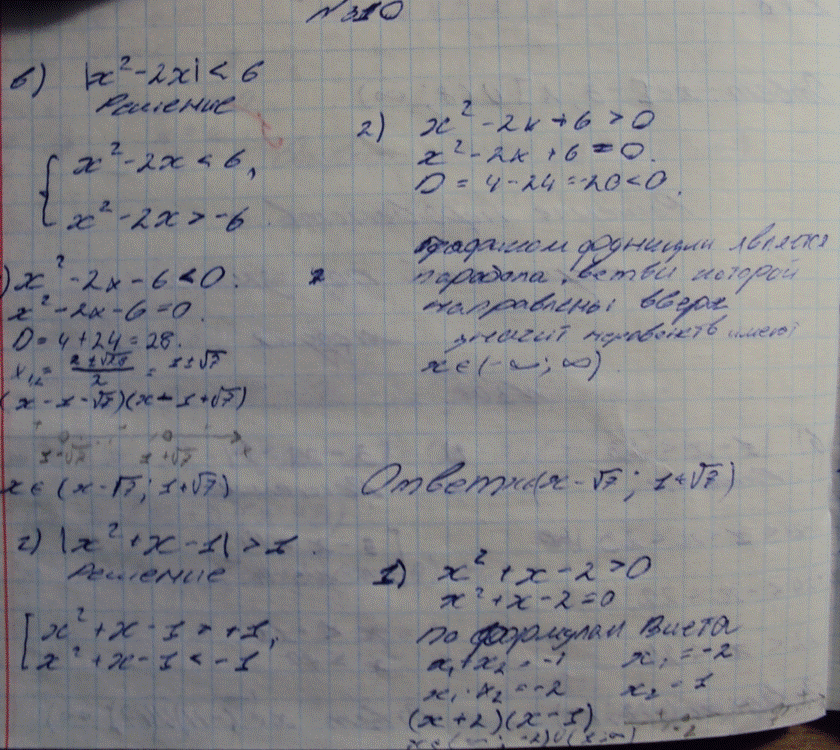 №310
в) |x² - 2x| < 6
Решение
{ x² - 2x < 6,
x² - 2x > -6
) x² - 2x - 6 < 0.
x² - 2x - 6 = 0.
D = 4 + 24 = 28.
x₁,₂ = (2 ± √28)/2 = 1 ± √7
(x - 1 - √7)(x - 1 + √7)
1-√7 1+√7
x ∈ (x - √7; 1 + √7)
2) x² - 2x + 6 > 0
x² - 2x + 6 = 0.
D = 4 - 24 = -20 < 0.
графиком функции является
парабола, ветви которой
направлены вверх
значит неравенств имеют
x ∈ (-∞; ∞)
Ответ: (x - √7; 1 + √7)
г) |x² + x - 1| > 1.
Решение
[ x² + x - 1 > +1,
x² + x - 1 < -1
1) x² + x - 2 > 0
x² + x - 2 = 0
по формулам Виета
x₁ + x₂ = -1 x₁ = -2
x₁ · x₂ = -2 x₂ = 1
(x + 2)(x - 1)